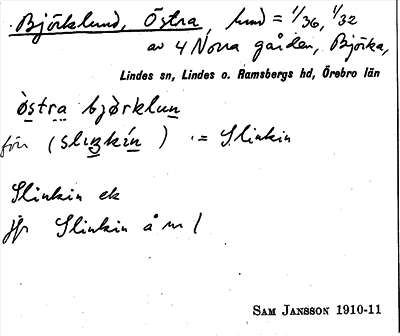 Björklund, Östra, hmd = 1/36, 1/32
av 4 Norra gården, Björka,
Lindes sn, Lindes o. Ramsbergs hd, Örebro län
òstra bjòrklun
förr (slinkín) = Slinkin
Slinkin ek
jfr Slinkin å m 1
SAM JANSSON 1910-11